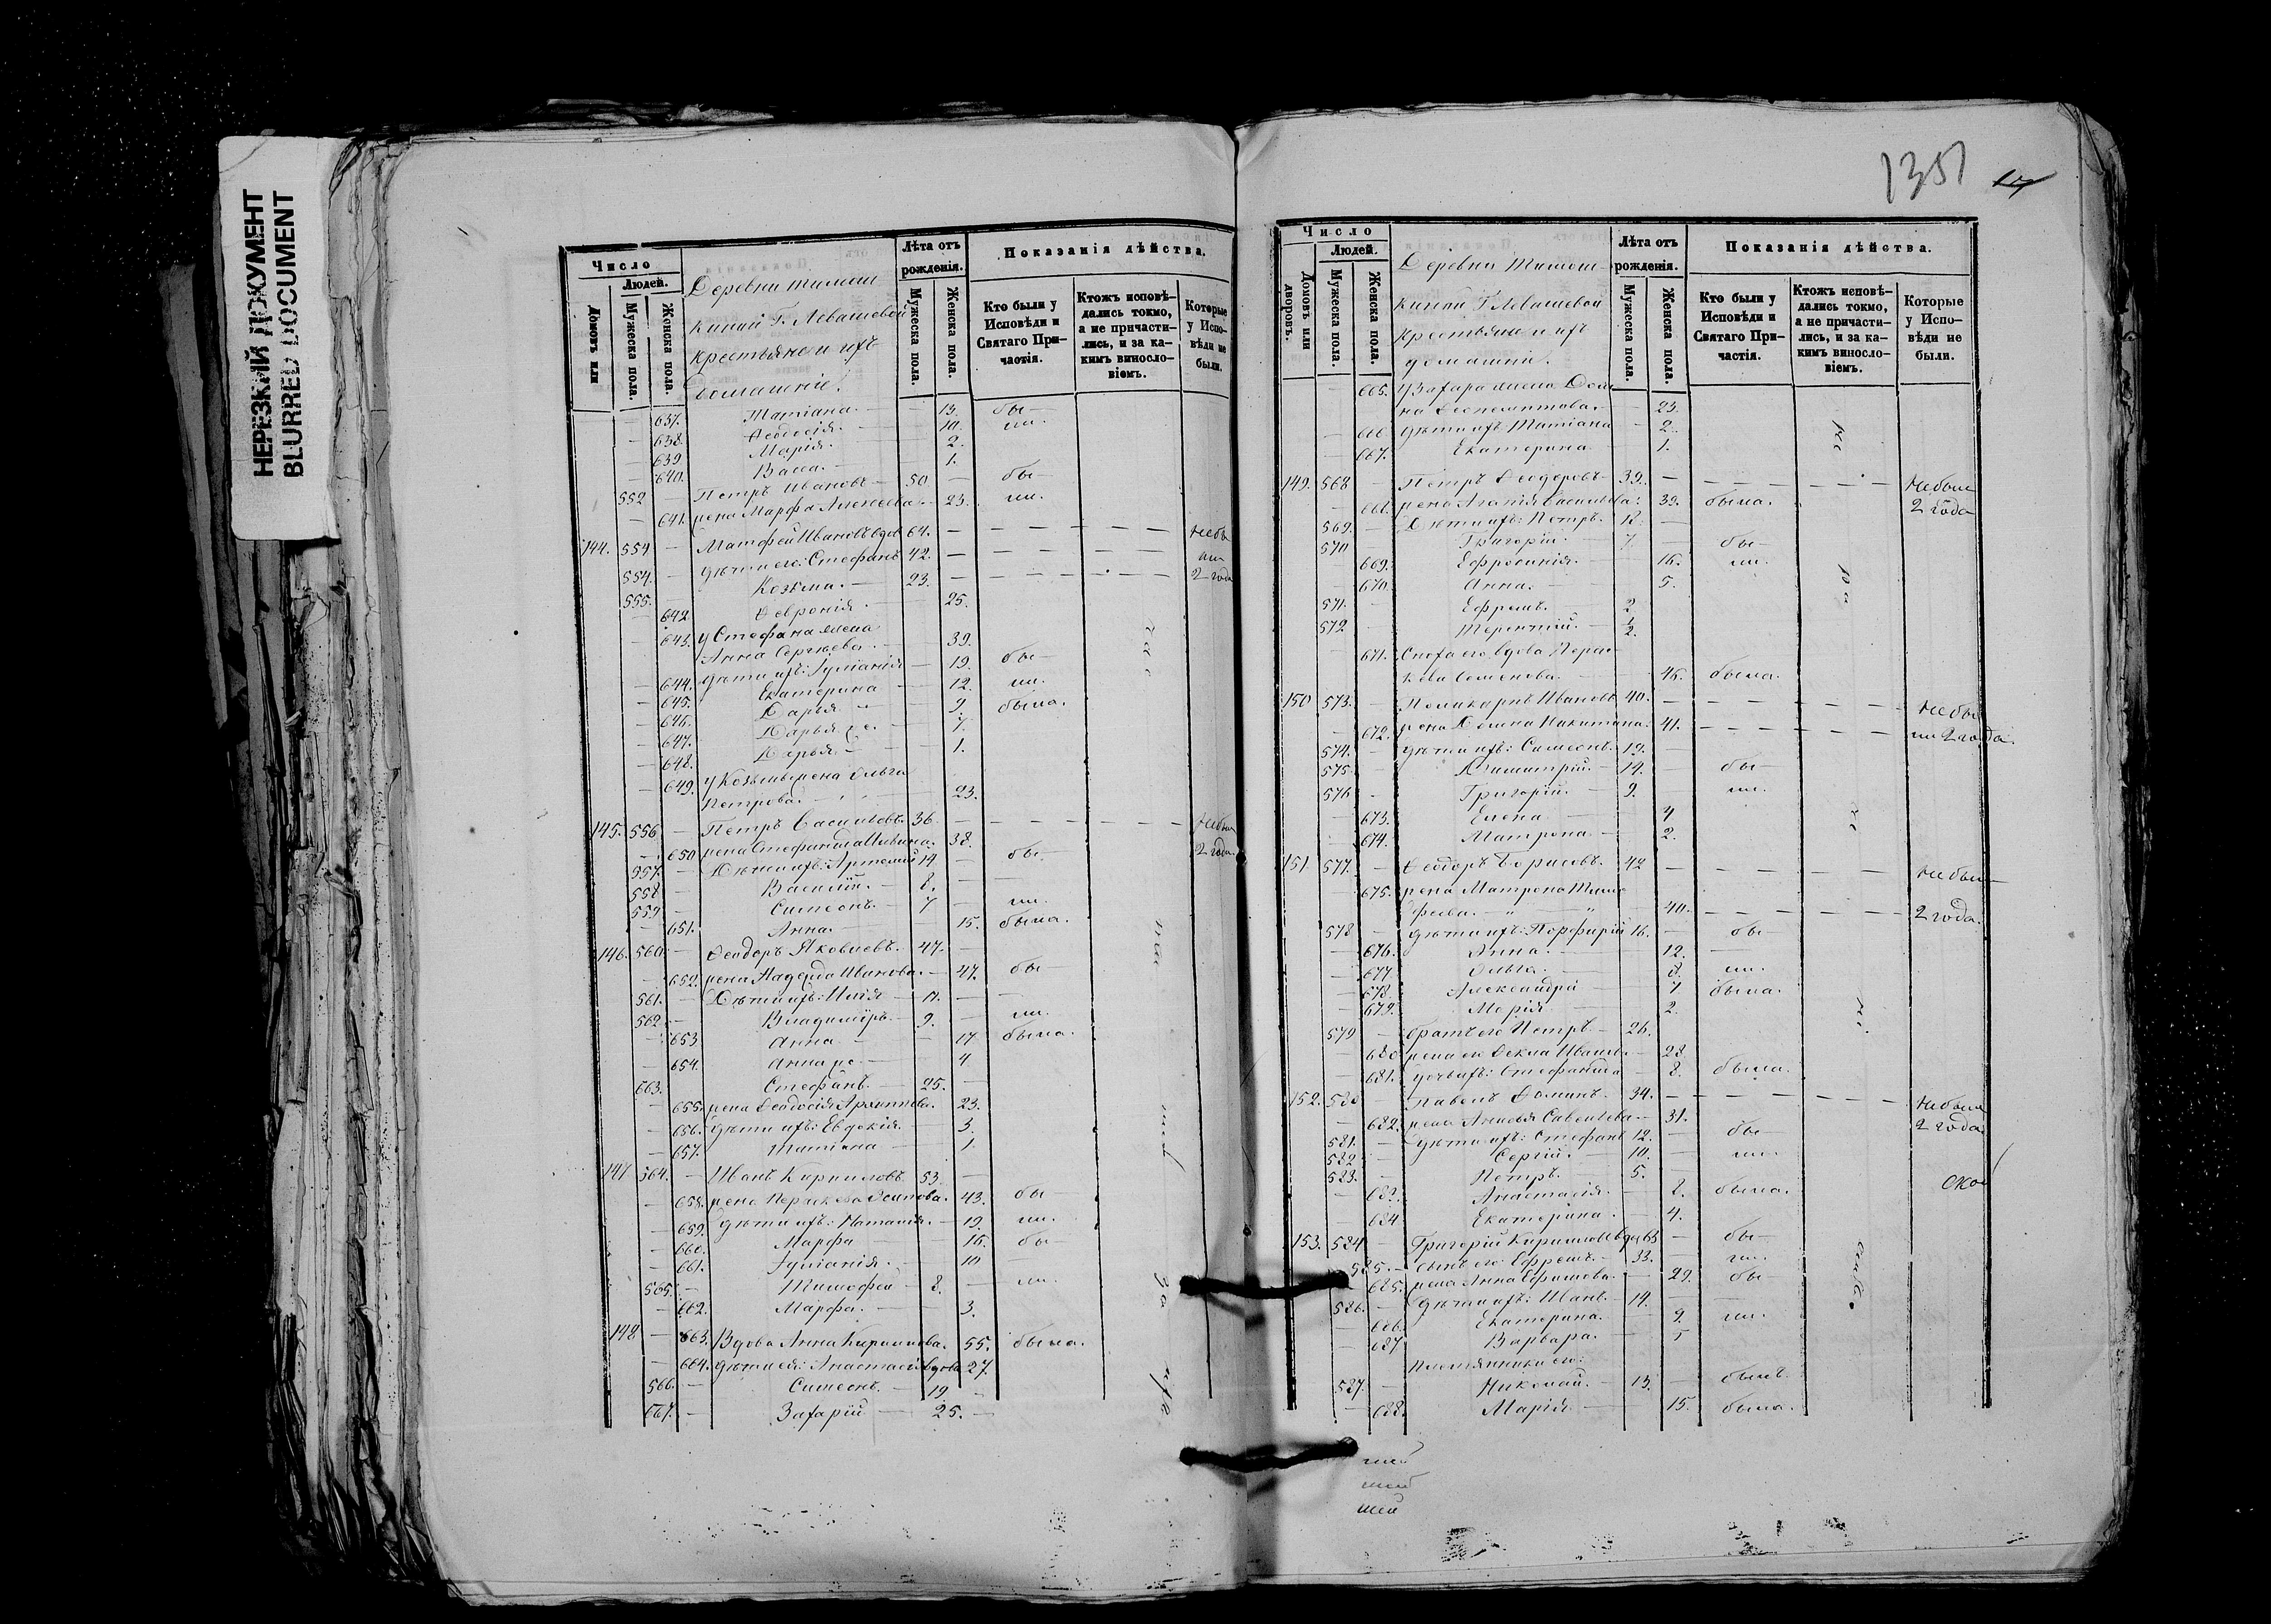 НЕРЕЗКИЙ ДОКУМЕНТ
BLURRED DOCUMENT
Число
Домовъ или
Людей.
Мужеска пола.
Женска пола.
Деревни Тимош
киной Г. Левашевой
крестьяне и ихъ
домашніе.
Лѣта отъ рожденія.
Мужеска пола.
Женска пола.
Показанія дѣйства.
Кто были у Исповѣди и Святаго Причастія.
Ктожъ исповѣдались токмо, а не причастились, и за какимъ винословіемъ.
Которые у Исповѣди не были.
637. Татіана. — 13. бы—
638. Ѳеодосія. — 10. ли.
639 Марія. — 2.
640. Васса. — 1.
552 — Петръ Ивановъ — 50 — бы—
641. жена Марѳа Алексеева — 23. ли.
144. 554 — Матфей Ивановъ вдов 64. — небы
554. — дѣти его: Стефанъ 42. — ли
555. Козьма. — 23. — 2 года
642 Ѳевронія. — 25.
643. у Стефана жена
Анна Сергѣева. — 39.
644. дѣти ихъ: Іуліанія — 19. бы—
645. Екатерина — 12. ли.
646. Дарья — 9. была.
647. Дарья — 7.
648. Дарья — 1.
649. у Козьмы жена Ольга
Петрова. — 23.
145. 556 — Петръ Васильевъ 36 — небыли
650 жена Стефанида — 38. 2 года.
557. — Дѣти ихъ: Артемій 14 — бы—
558 — Василій. — 8. —
559 — Симеонъ. — 7 — ли.
651. Анна. — 15. была.
146. 560 — Ѳеодоръ Яковлевъ. 47. —
652. жена Надежда Иванова. — 47. бы—
561. — Дѣти ихъ: Илія — 11. —
562 — Владиміръ. — 9. — ли.
653. Анна — 17 была.
654. Анна — 4
563. Стефанъ. — 25. —
655. жена Ѳеодосія Архиппова. 23.
656. дѣти ихъ: Евдокія. — 3.
657. Татіана — 1.
147 564. — Иванъ Кирилловъ 53 —
658. жена Параскева Осипова. 43. бы—
659. дѣти ихъ: Наталія. — 19. ли.
660. Марѳа — 16. бы—
661. Іуліанія. — 10
565. — Тимофей — 8. — ли.
662. Марѳа. — 3.
148 — 663. Вдова Анна Кириллова. 55. была.
664. дѣти ея: Анастасія вдова 27.
566. — Симеонъ. — 19 —
567. — Захарій — 25. —
1351
17
Число
Домовъ или дворовъ.
Людей.
Мужеска пола.
Женска пола.
Деревни Тимош-
киной Г. Левашевой
Крестьяне и ихъ
домашніе.
Лѣта отъ рожденія.
Мужеска пола.
Женска пола.
Показанія дѣйства.
Кто были у Исповѣди и Святаго Причастія.
Ктожъ исповѣдались токмо, а не причастились, и за какимъ винословіемъ.
Которые у Исповѣди не были.
665. У Захара жена Дом
на — 23.
666 дѣти ихъ Татіана — 2.
667. Екатерина — 1.
149. 568 — Петръ Ѳеодоровъ — 39. — небыли
668. жена Агаѳія Васильева. 39. была. 2 года
569. — Дѣти ихъ: Петръ. 12. —
570 Григорій. — 7 — бы—
669. Ефросинія. — 16. ли.
670. Анна. — 5.
571. — Ефремъ. — 2
572 — Терентій. — 1/2.
671. Сноха его вдова Парас
кева Семенова. — 46. была.
150 573. — Поликарпъ Ивановъ 40. — небы
672. жена Домна Никитина. 41. — ли 2 года.
574. — дѣти ихъ: Симеонъ. 19. —
575. Димитрій. — 14. — бы—
576 — Григорій. — 9. ли.
673. Елена — 4
674. Матрона — 2.
151 577. — Ѳеодоръ Борисовъ. 42 — небыли
675. жена Матрона Тимо
феева. — 40. — 2 года.
578 — дѣти ихъ: Порфирій 16. — бы—
676. Анна. — 12. —
677 Ольга. — 8. ли.
678. Александра — 7 была.
679. Марія — 2.
579 — братъ его Петръ — 26.
680 жена его Ѳекла Иванова — 28
681. дочь ихъ: Стефанида — 8. была.
152. 580 — Павелъ Ѳоминъ. 34. — небыли
682. жена Савельева — 31. 2 года
581. — дѣти ихъ: Стефанъ 12. — бы—
582 — Сергій. — 10. — ли.
583. — Петръ. — 5. —
683. Анастасія. — 8. была.
684 Екатерина. — 4.
153. 584 — Григорій Кирилловъ вдов 63 — бы—
585. — сынъ его: Ефремъ. — 33. — ли.
685. жена Анна Ефимова. — 29. бы—
586. — дѣти ихъ: Иванъ. — 14. —
686. Екатерина. — 9. ли.
687 Варвара. — 5
племянники его:
587. — Николай. — 13. — былъ.
688. Марія. — 15. была.
шей
шей
шей